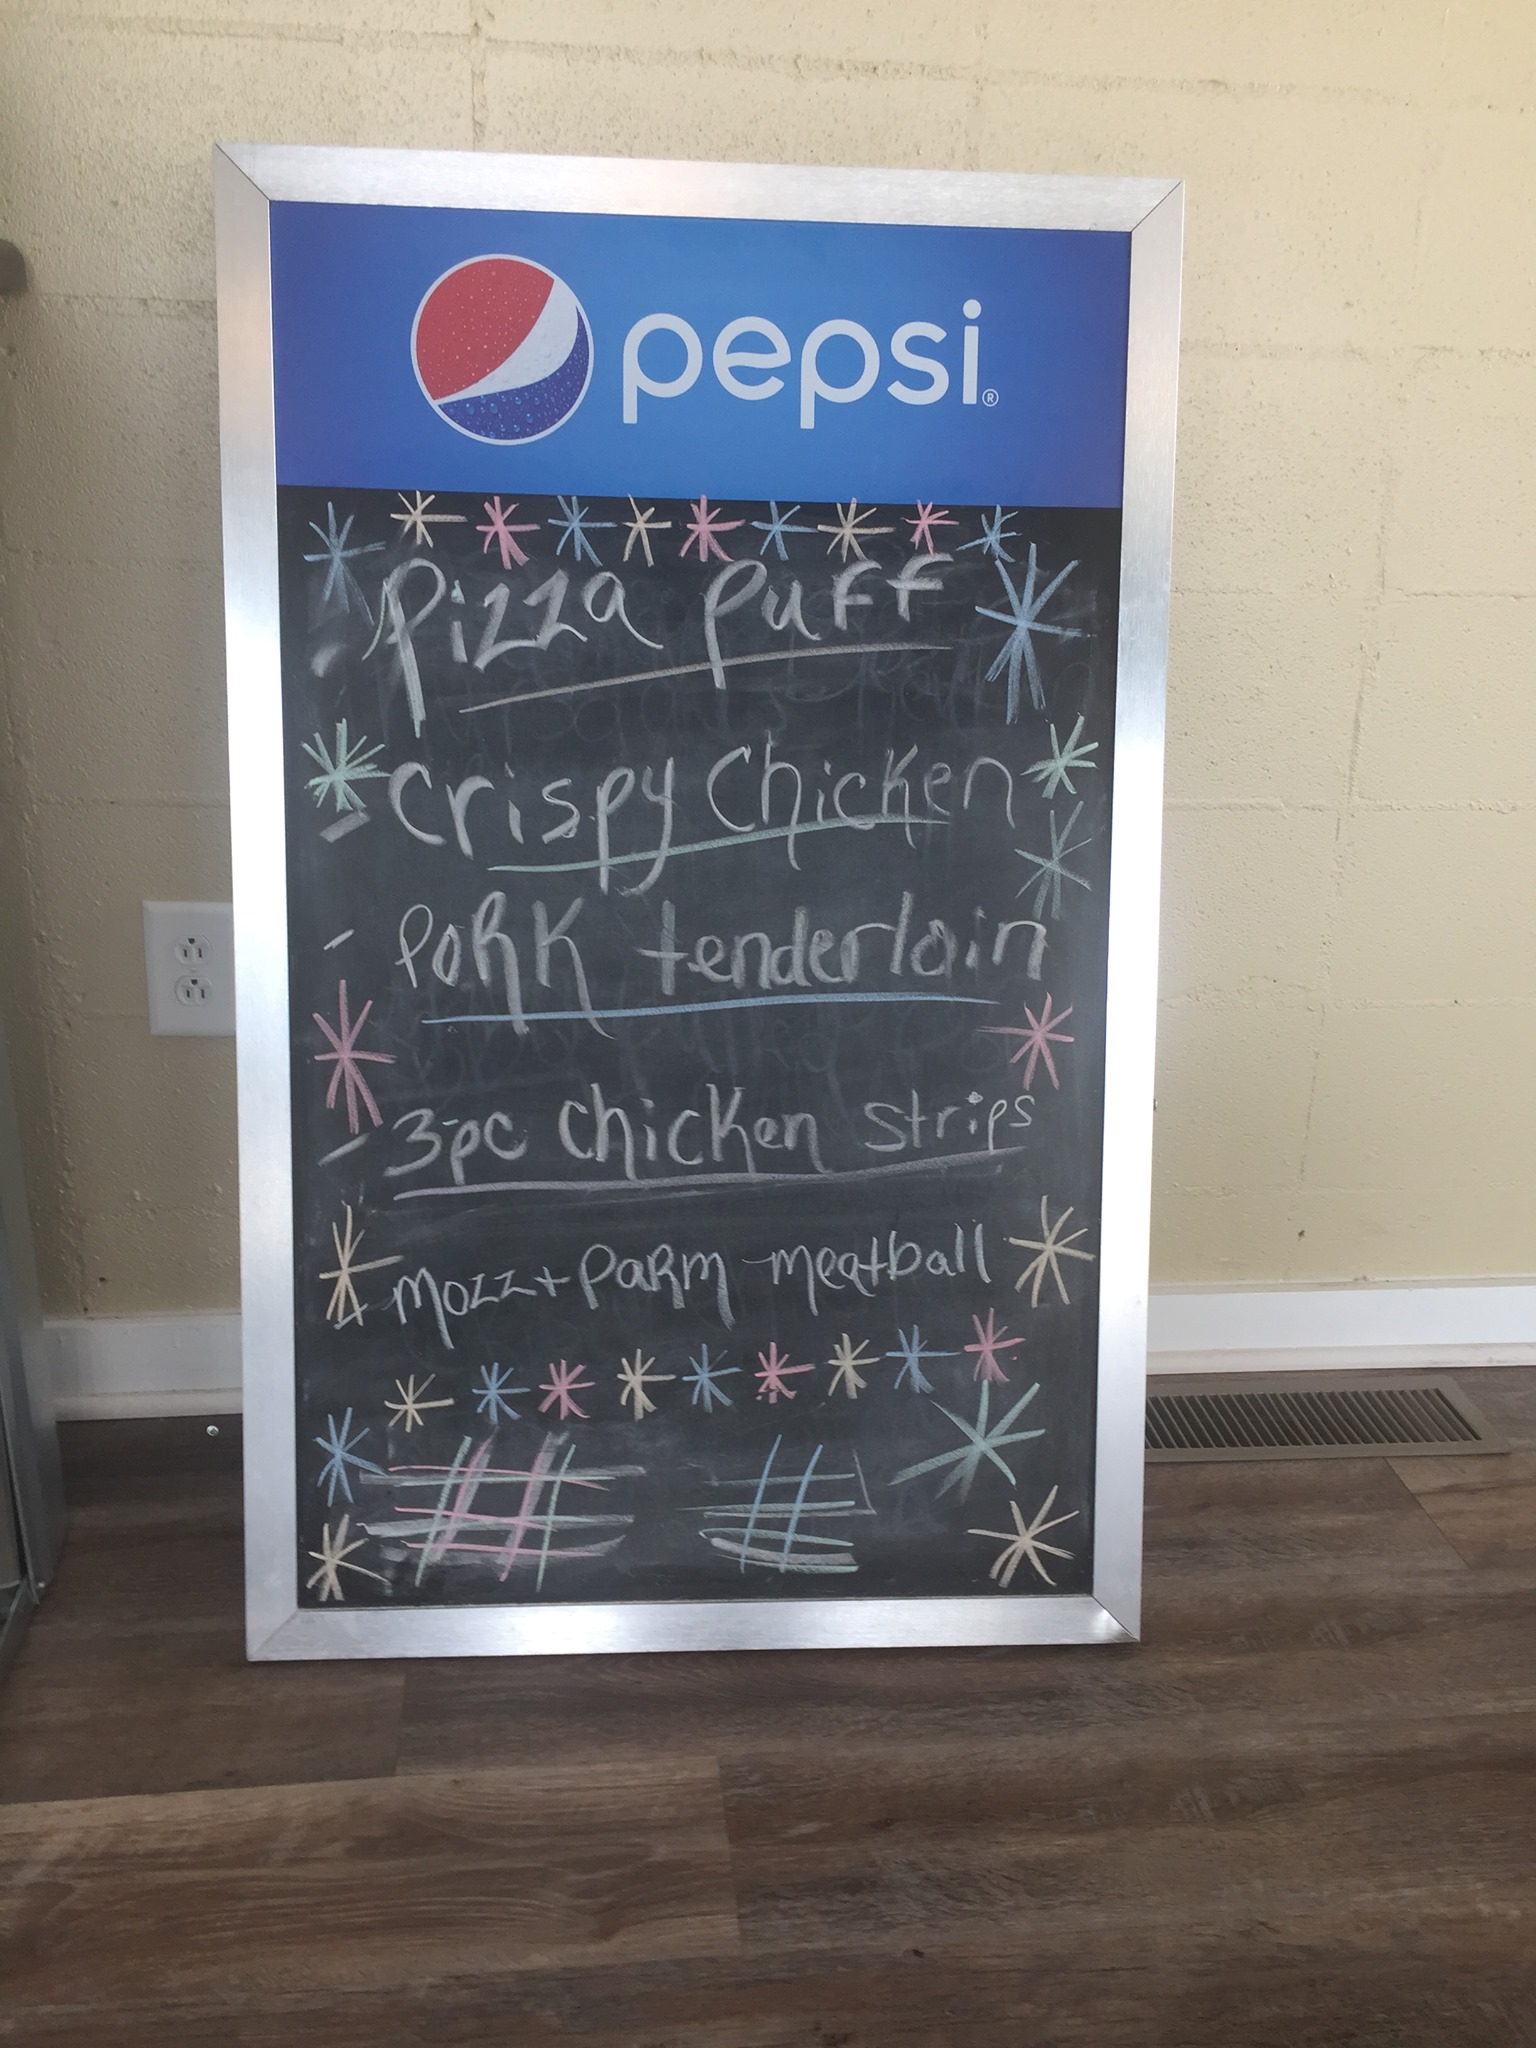 pepsi®
- Pizza Puff
- Crispy Chicken
- PORK tenderloin
- 3pc chicken strips
- Mozz + PaRM meatball